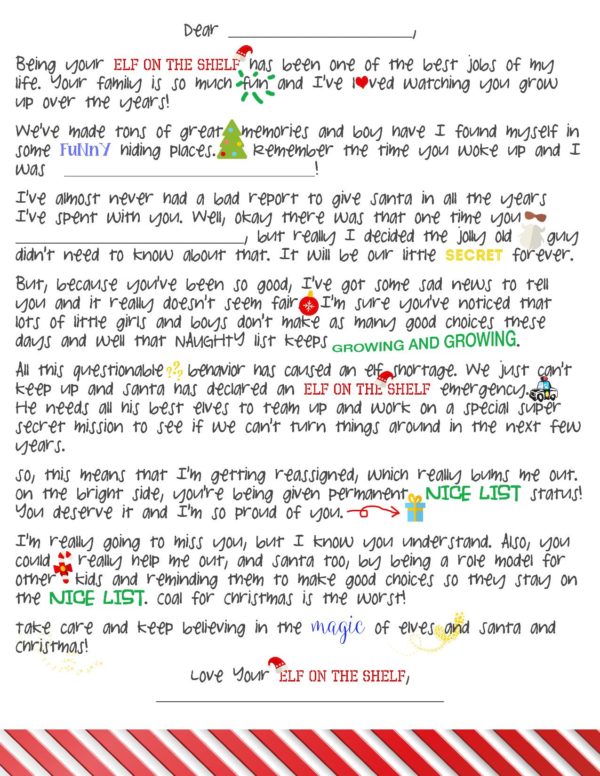 Dear ____________________,
Being your ELF ON THE SHELF has been one of the best jobs of my
life. Your family is so much fun and I've loved watching you grow
up over the years!
We've made tons of great memories and boy have I found myself in
some FUNNY hiding places. Remember the time you woke up and I
was ____________________!
I've almost never had a bad report to give santa in all the years
I've spent with you. Well, okay there was that one time you
____________________, but really I decided the jolly old guy
didn't need to know about that. It will be our little SECRET forever.
But, because you've been so good, I've got some sad news to tell
you and it really doesn't seem fair. I'm sure you've noticed that
lots of little girls and boys don't make as many good choices these
days and well that NAUGHTY list keeps GROWING AND GROWING.
All this questionable ??? behavior has caused an elf shortage. We just can't
keep up and santa has declared an ELF ON THE SHELF emergency.
He needs all his best elves to team up and work on a special super
secret mission to see if we can't turn things around in the next few
years.
So, this means that I'm getting reassigned, which really bums me out.
On the bright side, you're being given permanent NICE LIST status!
You deserve it and I'm so proud of you.
I'm really going to miss you, but I know you understand. Also, you
could really help me out, and santa too, by being a role model for
other kids and reminding them to make good choices so they stay on
the NICE LIST. Coal for christmas is the worst!
Take care and keep believing in the magic of elves and santa and
christmas!
Love Your ELF ON THE SHELF,
____________________